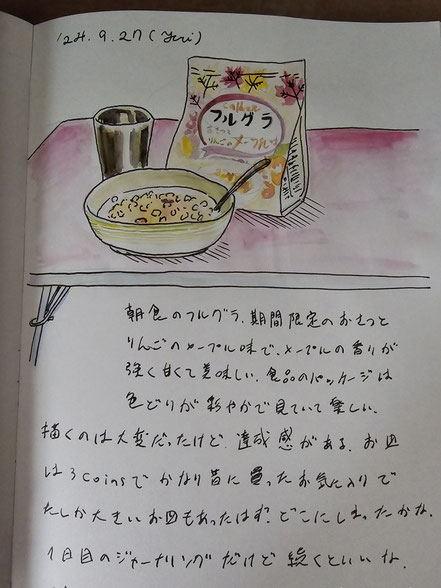 '24.9.27(Fri)
Calbee
フルグラ
おさつと
りんごのメープル味
朝食のフルグラ、期間限定のおさつと
りんごのメープル味で、メープルの香りが
強く甘くて美味しい。食品のパッケージは
色どりが彩やかで見ていて楽しい。
描くのは大変だったけど、達成感がある。お皿
は3coinsでかなり昔に買ったお気に入りで
たしか大きいお皿もあったはず。どこにしまったかな。
1日目のジャーナリングだけど続くといいな。